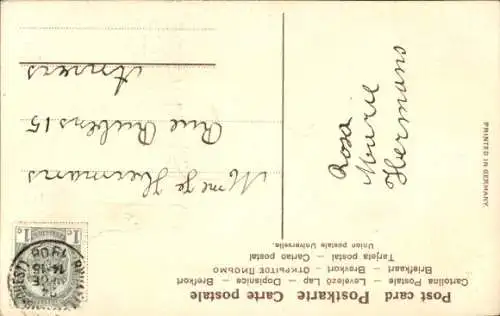 Post card Postkarte Carte postale
Cartolina Postale – Levelező Lap – Dopisnice – Brefkort
Briefkaart – Brevkort – ОТКРЫТОЕ ПИСЬМО
Tarjeta postal – Cartao postal
Union postale Universelle.
Mme Je Hermans
Rue Rubens 15
Anvers
Rosa
Marie
Hermans
PRINTED IN GERMANY.
1c 1c
14-15